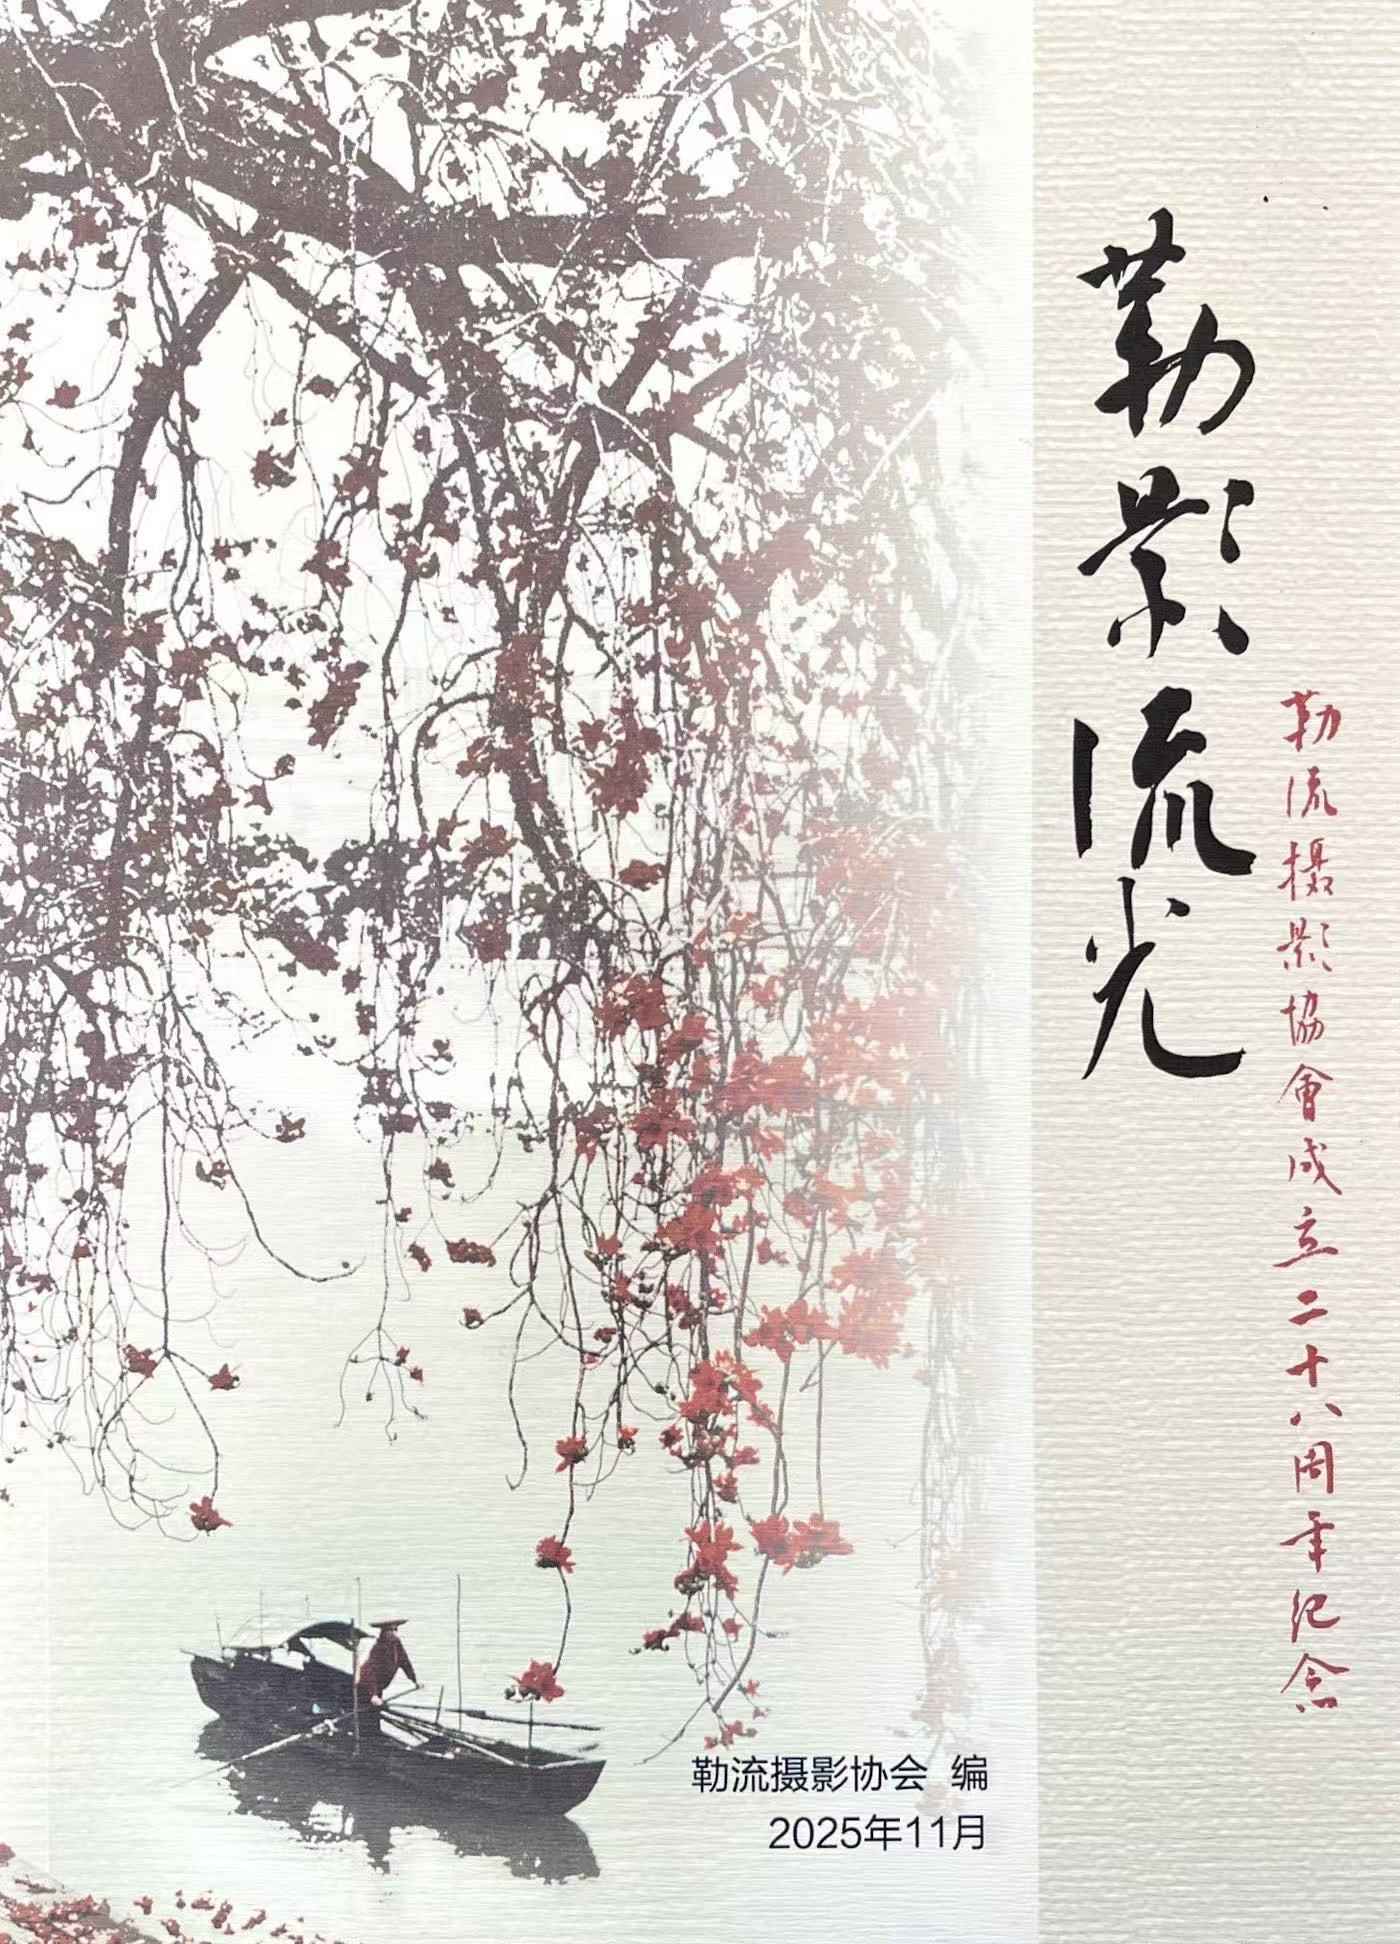 勒影流光
勒流摄影協會成立二十八周年纪念
勒流摄影协会 编
2025年11月